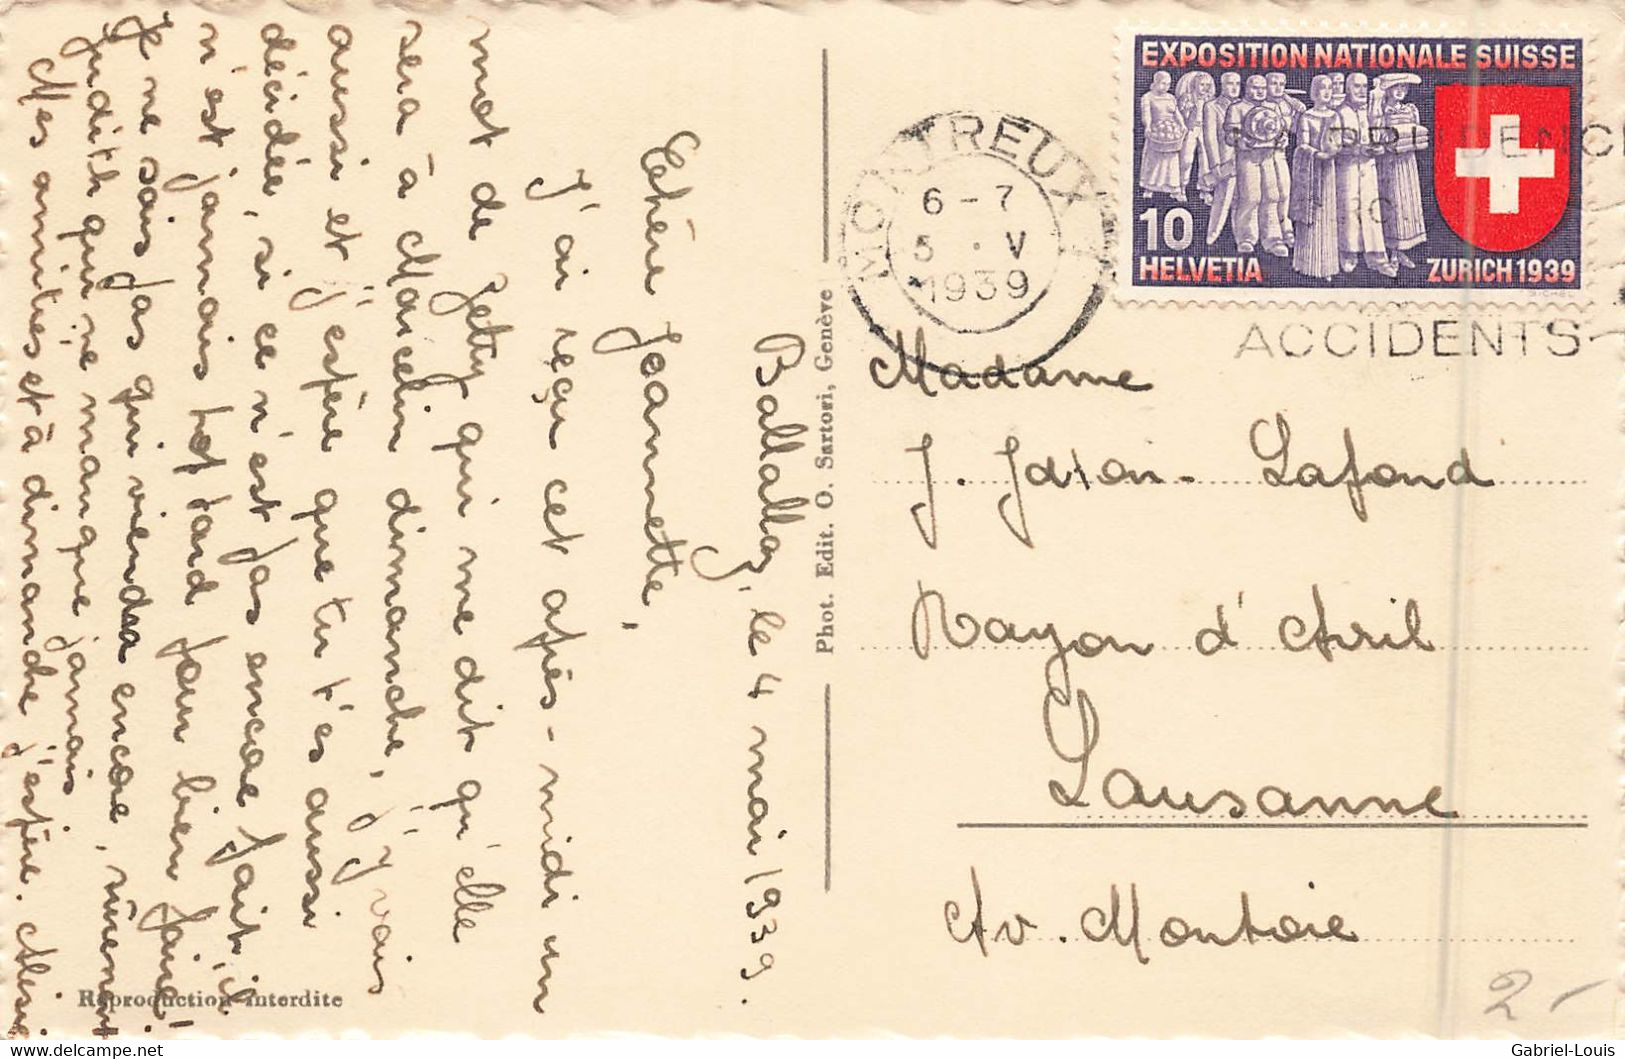 Ballallaz, le 4 mai 1939.
Chère Jeannette,
J'ai reçu cet après-midi un
mot de Jetty qui me dit qu'elle
sera à Marcelin dimanche, j'y vais
aussi et j'espère que tu t'es aussi
décidée, si ce n'est pas encore fait il
n'est jamais trop tard pour bien faire!
Je ne sais pas qui viendra encore, sûrement
Judith qui ne manque jamais
Mes amitiés et à dimanche j'espère.
Reproduction interdite
Phot. Edit. O. Sartori, Genève
MONTREUX 1
6 - 7
5 . V
1939
LA PRUDENCE
ACCIDENTS
EXPOSITION NATIONALE SUISSE
10
HELVETIA
ZURICH 1939
Madame
J. Lafond
Rayon d'Avril
Lausanne
Av. Montoie
2-
delcampe.net
Gabriel-Louis